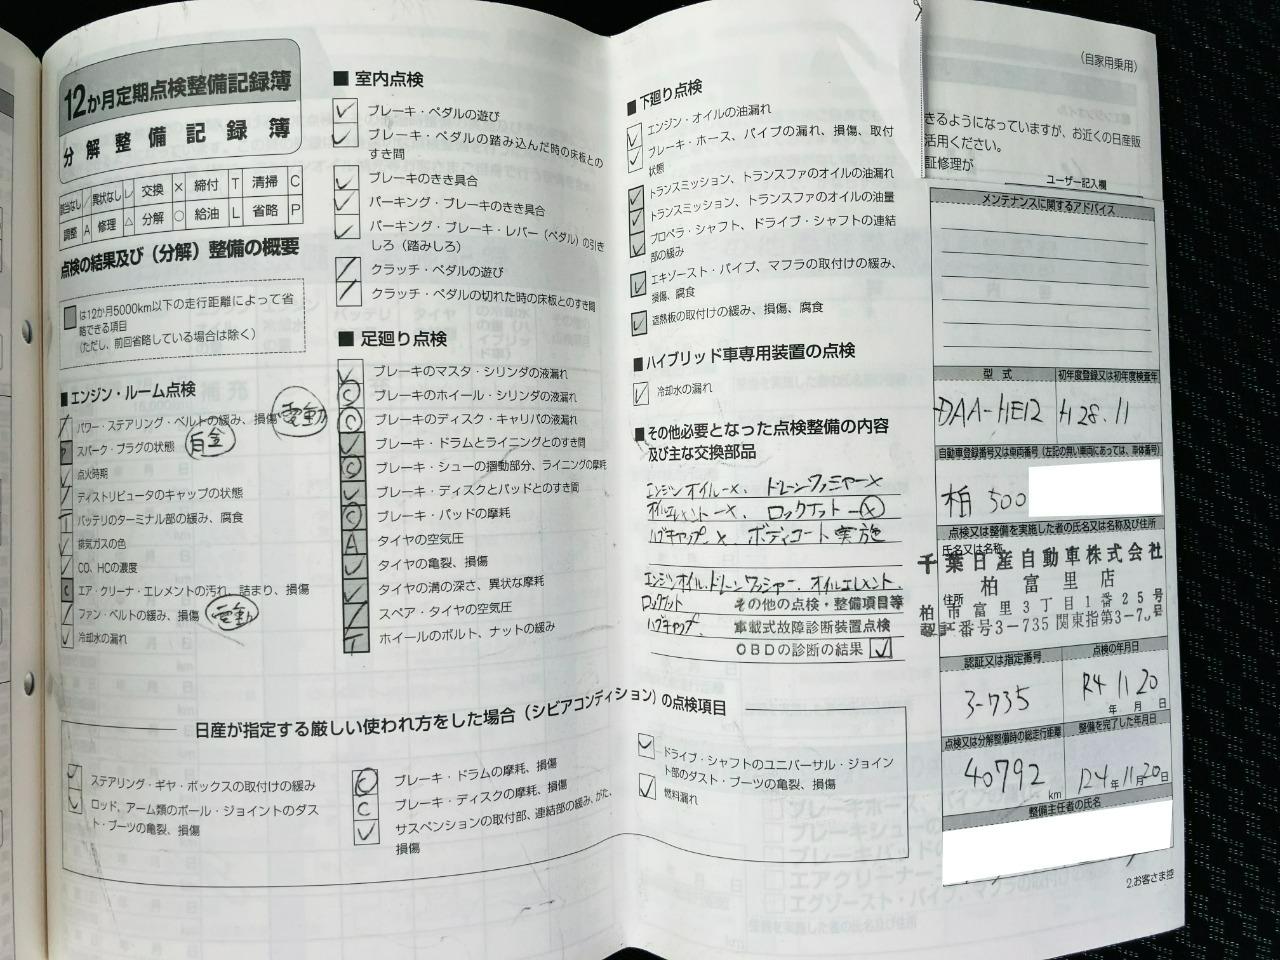 12か月定期点検整備記録簿
分解整備記録簿
該当なし / 異状なし レ 交換 × 締付 T 清掃 C
調整 A 修理 △ 分解 ○ 給油 L 省略 P
点検の結果及び（分解）整備の概要
は12か月5000km以下の走行距離によって省
略できる項目
（ただし、前回省略している場合は除く）
■エンジン・ルーム点検
パワー・ステアリング・ベルトの緩み、損傷 電動
スパーク・プラグの状態 白金
点火時期
ディストリビュータのキャップの状態
バッテリのターミナル部の緩み、腐食
排気ガスの色
CO、HCの濃度
エア・クリーナ・エレメントの汚れ、詰まり、損傷
ファン・ベルトの緩み、損傷 電動
冷却水の漏れ
■室内点検
ブレーキ・ペダルの遊び
ブレーキ・ペダルの踏み込んだ時の床板との
すき間
ブレーキのきき具合
パーキング・ブレーキのきき具合
パーキング・ブレーキ・レバー（ペダル）の引き
しろ（踏みしろ）
クラッチ・ペダルの遊び
クラッチ・ペダルの切れた時の床板とのすき間
■足廻り点検
ブレーキのマスタ・シリンダの液漏れ
ブレーキのホイール・シリンダの液漏れ
ブレーキのディスク・キャリパの液漏れ
ブレーキ・ドラムとライニングとのすき間
ブレーキ・シューの摺動部分、ライニングの摩耗
ブレーキ・ディスクとパッドとのすき間
ブレーキ・パッドの摩耗
A タイヤの空気圧
タイヤの亀裂、損傷
タイヤの溝の深さ、異状な摩耗
スペア・タイヤの空気圧
T ホイールのボルト、ナットの緩み
■下廻り点検
エンジン・オイルの油漏れ
ブレーキ・ホース、パイプの漏れ、損傷、取付
状態
トランスミッション、トランスファのオイルの油漏れ
トランスミッション、トランスファのオイルの油量
プロペラ・シャフト、ドライブ・シャフトの連結
部の緩み
エキゾースト・パイプ、マフラの取付けの緩み、
損傷、腐食
遮熱板の取付けの緩み、損傷、腐食
■ハイブリッド車専用装置の点検
冷却水の漏れ
■その他必要となった点検整備の内容
及び主な交換部品
エンジンオイル-×、ドレーンワッシャー×
オイルエレメント-×、ロックナット-ⓧ
ハブキャップ-×、ボディコート実施
エンジンオイル、ドレーンワッシャー、オイルエレメント、
ロックナット その他の点検・整備項目等
ハブキャップ、 車載式故障診断装置点検
OBDの診断の結果 レ
日産が指定する厳しい使われ方をした場合（シビアコンディション）の点検項目
ステアリング・ギヤ・ボックスの取付けの緩み
ロッド、アーム類のボール・ジョイントのダス
ト・ブーツの亀裂、損傷
ブレーキ・ドラムの摩耗、損傷
C ブレーキ・ディスクの摩耗、損傷
サスペンションの取付部、連結部の緩み、がた、
損傷
ドライブ・シャフトのユニバーサル・ジョイン
ト部のダスト・ブーツの亀裂、損傷
燃料漏れ
（自家用乗用）
きるようになっていますが、お近くの日産販
活用ください。
証修理が
ユーザー記入欄
メンテナンスに関するアドバイス
型式 初年度登録又は初年度検査年
DAA-HE12 H28.11
自動車登録番号又は車両番号（左記の無い車両にあっては、車体番号）
柏 500
点検又は整備を実施した者の氏名又は名称及び住所
氏名又は名称
千葉日産自動車株式会社
柏富里店
住所
柏市富里3丁目1番25号
認証番号3-735 関東指第3-7 号
認証又は指定番号 点検の年月日
3-735 R4 11 20
年 月 日
点検又は分解整備時の総走行距離 整備を完了した年月日
40792 km R4年11月20日
整備主任者の氏名
2.お客さま控